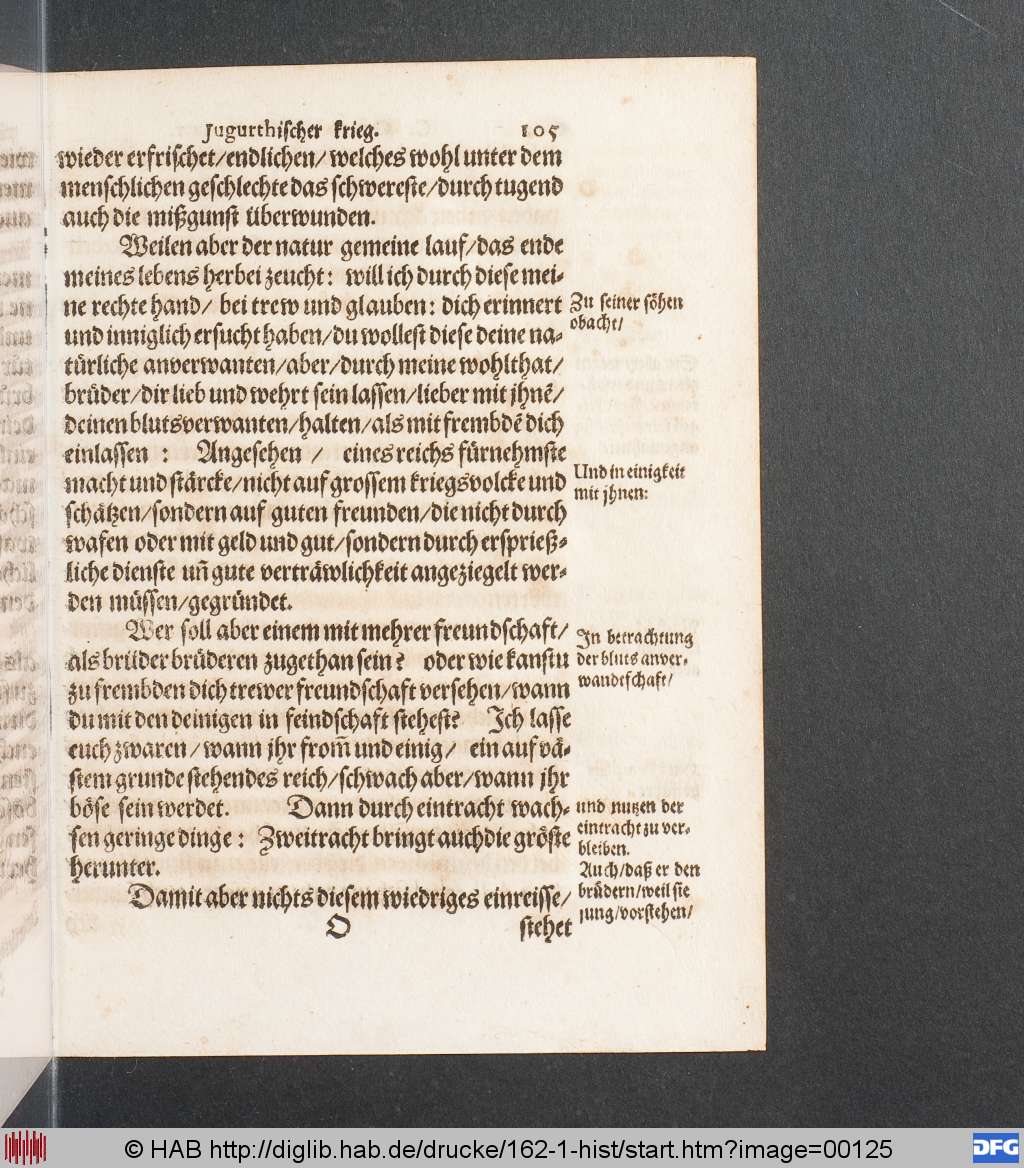 Jugurthischer krieg. 105
wieder erfrischet/endlichen/welches wohl unter dem
menschlichen geschlechte das schwereste/durch tugend
auch die mißgunst überwunden.
Weilen aber der natur gemeine lauf/das ende
meines lebens herbei zeucht: will ich durch diese mei-
ne rechte hand/ bei trew und glauben: dich erinnert
und inniglich ersucht haben/du wollest diese deine na-
türliche anverwanten/aber/durch meine wohlthat/
brüder/dir lieb und wehrt sein lassen/lieber mit jhnẽ/
deinen blutsverwanten/halten/als mit frembdẽ dich
einlassen : Angesehen / eines reichs fürnehmste
macht und stärcke/nicht auf grossem kriegsvolcke und
schätzen/sondern auf guten freunden/die nicht durch
wafen oder mit geld und gut/sondern durch ersprieß-
liche dienste uñ gute verträwlichkeit angeziegelt wer-
den müssen/gegründet.
Wer soll aber einem mit mehrer freundschaft/
als brüder brüderen zugethan sein? oder wie kanstu
zu frembden dich trewer freundschaft versehen/wann
du mit den deinigen in feindschaft stehest? Ich lasse
euch zwaren/wann jhr from̃ und einig/ ein auf vä-
stem grunde stehendes reich/schwach aber/wann jhr
böse sein werdet. Dann durch eintracht wach-
sen geringe dinge: Zweitracht bringt auch die gröste
herunter.
Damit aber nichts diesem wiedriges einreisse/
O stehet
Zu seiner söhen
obacht/
Und in einigkeit
mit jhnen:
In betrachtung
der bluts anver-
wandtschaft/
und nutzen der
eintracht zu ver-
bleiben.
Auch/daß er den
brüdern/weil sie
jung/vorstehen/
© HAB http://diglib.hab.de/drucke/162-1-hist/start.htm?image=00125
DFG